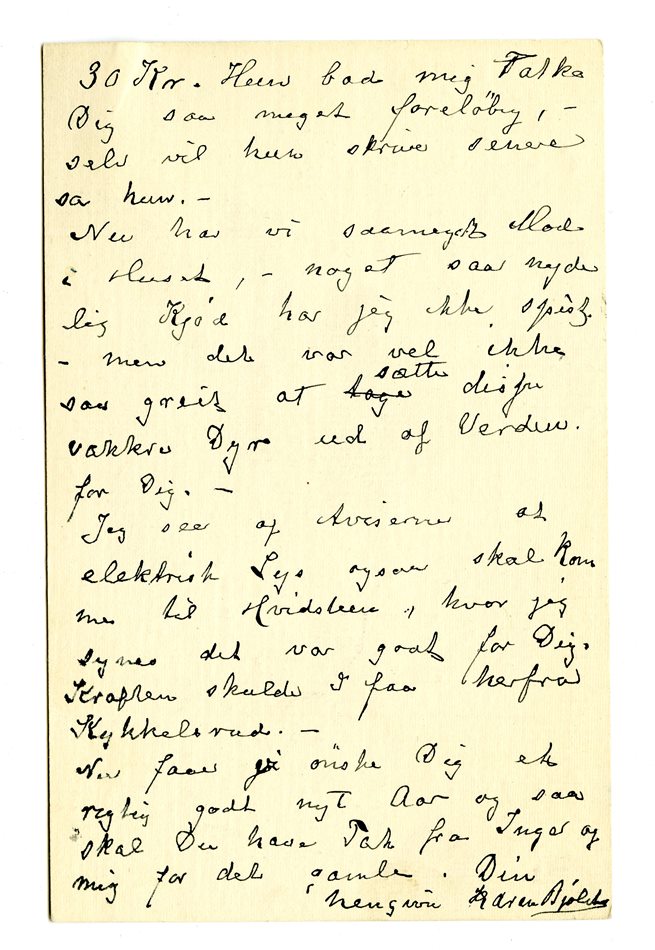 30 Kr. Hun bad mig Takke
Dig saa meget foreløbig, –
selv vil hun skrive senere
sa hun. –
Nu har vi saameget Mad
i Huset, – noget saa nyde
lig Kjød har jeg ikke spist.
– men det var vel ikke
sætte
saa greit at tage disse
vakkre Dyr ud af Verden.
for Dig. –
Jeg see af Aviserne at
elektrisk Lys ogsaa skal kom
me til Hvidsteen, hvor jeg
synes det var godt for Dig.
Kraften skulde I faa herfra
Kykkelsrud. –
Nu faar vi önske Dig et
rigtig godt nyt Aar og saa
skal Du have Tak fra Inger og
mig for det gamle. Din
hengivne Karen Bjølstad